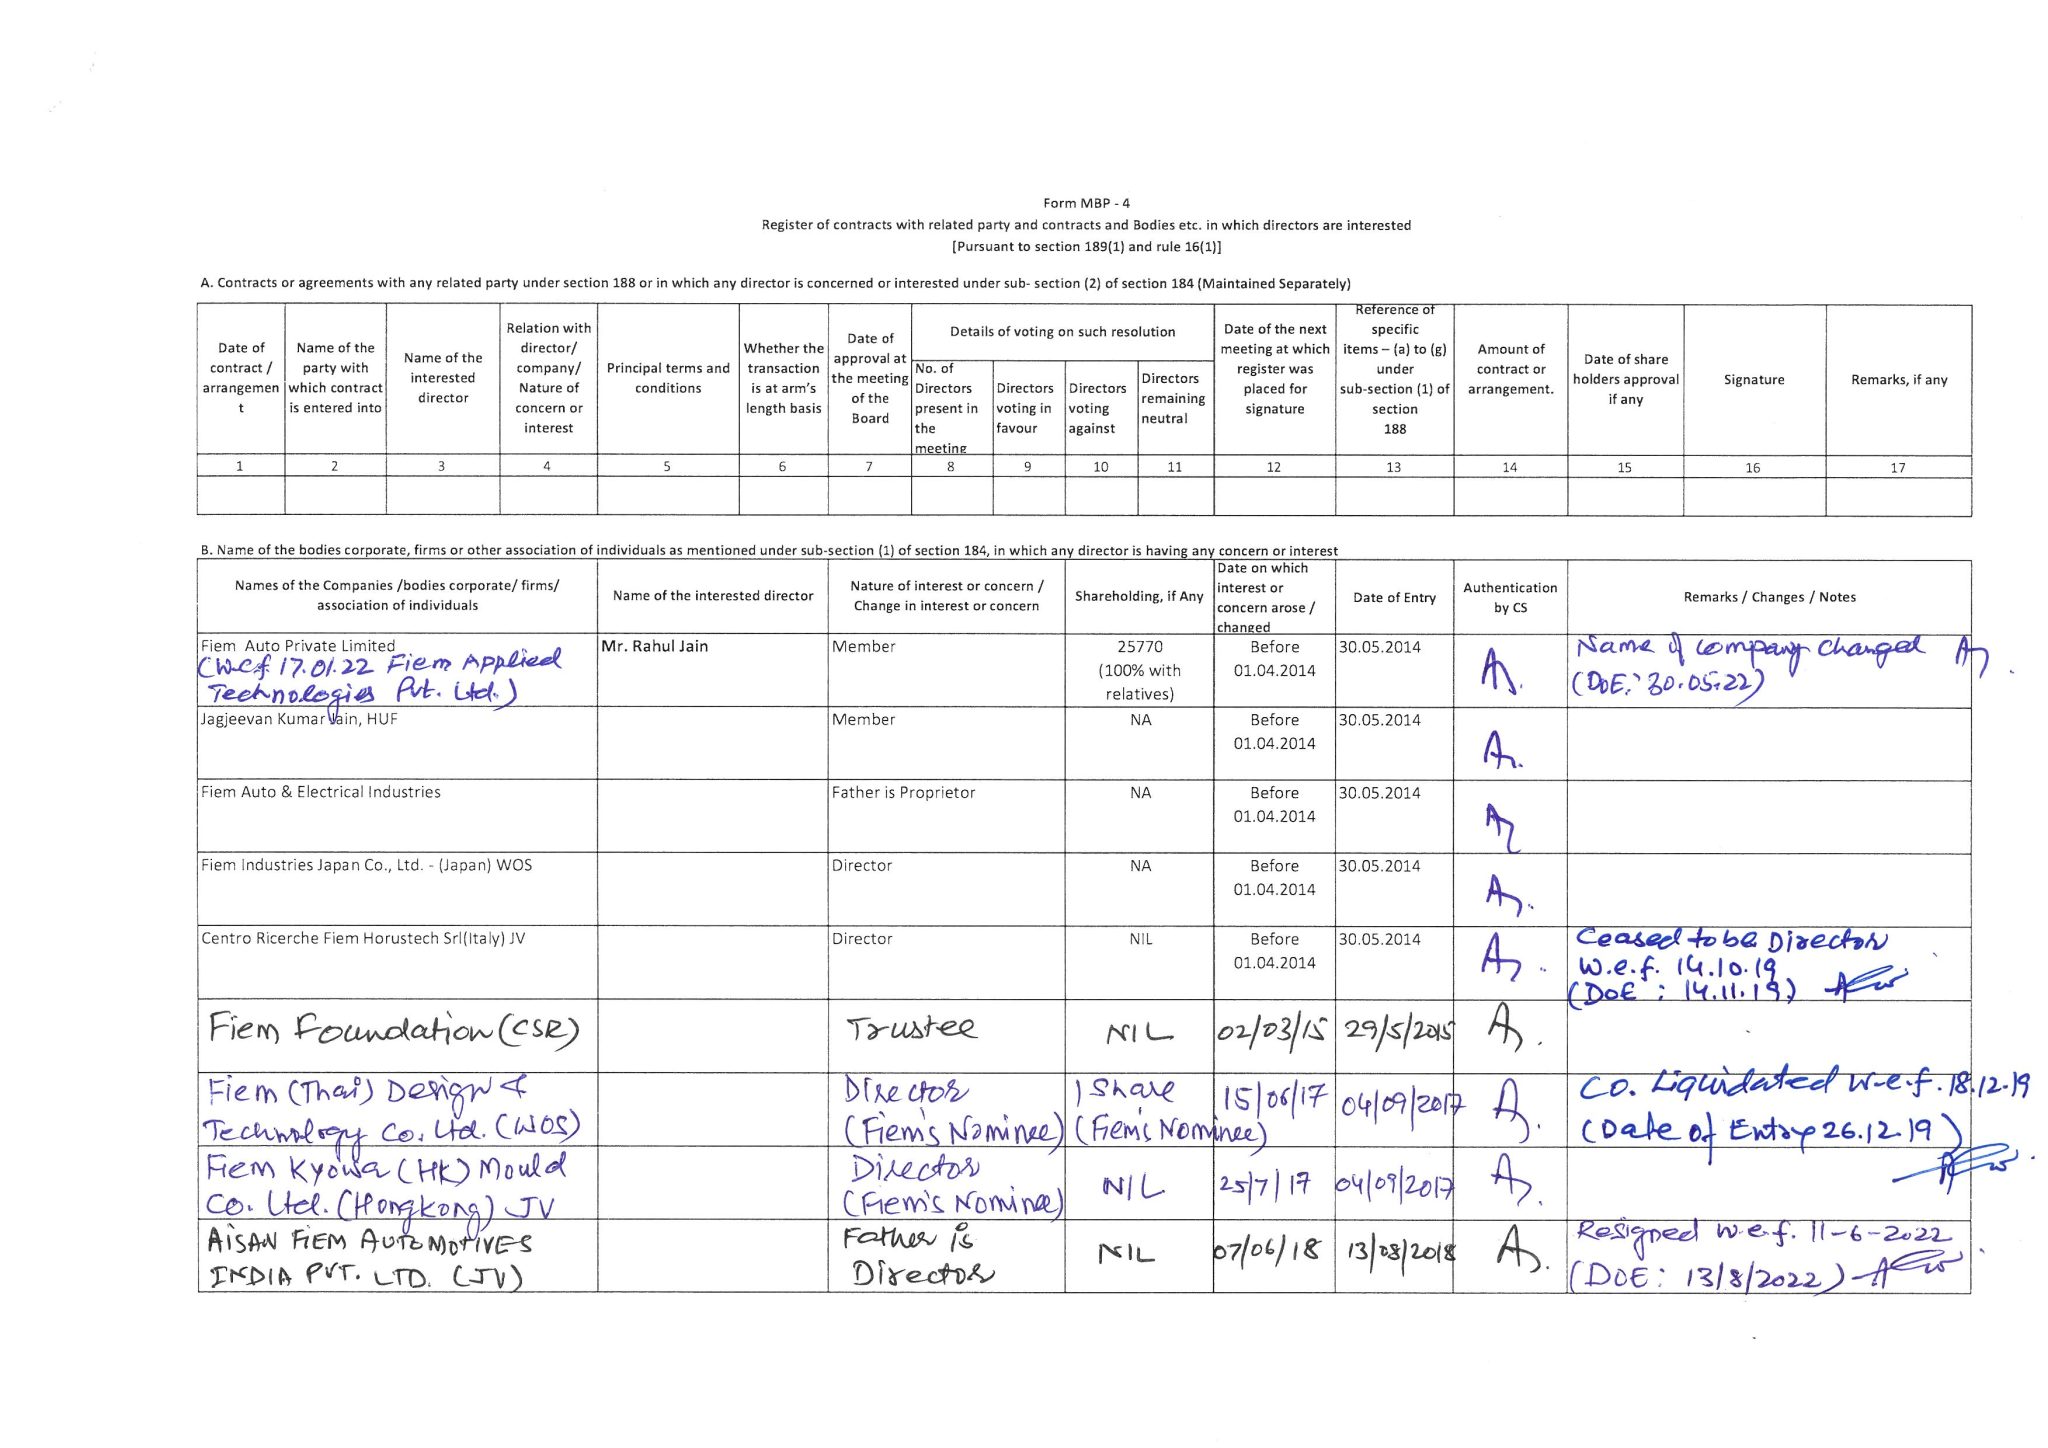 Form MBP - 4
Register of contracts with related party and contracts and Bodies etc. in which directors are interested
[Pursuant to section 189(1) and rule 16(1)]
A. Contracts or agreements with any related party under section 188 or in which any director is concerned or interested under sub- section (2) of section 184 (Maintained Separately)
Date of
contract /
arrangemen
t
Name of the
party with
which contract
is entered into
Name of the
interested
director
Relation with
director/
company/
Nature of
concern or
interest
Principal terms and
conditions
Whether the
transaction
is at arm's
length basis
Date of
approval at
the meeting
of the
Board
Details of voting on such resolution
No. of
Directors
present in
the
meeting
Directors
voting in
favour
Directors
voting
against
Directors
remaining
neutral
Date of the next
meeting at which
register was
placed for
signature
Reference of
specific
items – (a) to (g)
under
sub-section (1) of
section
188
Amount of
contract or
arrangement.
Date of share
holders approval
if any
Signature
Remarks, if any
1 2 3 4 5 6 7 8 9 10 11 12 13 14 15 16 17
B. Name of the bodies corporate, firms or other association of individuals as mentioned under sub-section (1) of section 184, in which any director is having any concern or interest
Names of the Companies /bodies corporate/ firms/
association of individuals
Name of the interested director
Nature of interest or concern /
Change in interest or concern
Shareholding, if Any
Date on which
interest or
concern arose /
changed
Date of Entry
Authentication
by CS
Remarks / Changes / Notes
Fiem Auto Private Limited
(w.e.f 17.01.22 Fiem Applied
Technologies Pvt. Ltd.)
Mr. Rahul Jain
Member
25770
(100% with
relatives)
Before
01.04.2014
30.05.2014
Name of company changed
(DoE: 30.05.22)
Jagjeevan Kumar Jain, HUF
Member
NA
Before
01.04.2014
30.05.2014
Fiem Auto & Electrical Industries
Father is Proprietor
NA
Before
01.04.2014
30.05.2014
Fiem Industries Japan Co., Ltd. - (Japan) WOS
Director
NA
Before
01.04.2014
30.05.2014
Centro Ricerche Fiem Horustech Srl(Italy) JV
Director
NIL
Before
01.04.2014
30.05.2014
Ceased to be Director
w.e.f. 14.10.19
(DoE : 14.11.19)
Fiem Foundation (CSR)
Trustee
NIL
02/03/15
29/5/2015
Fiem (Thai) Design &
Technology Co. Ltd. (WOS)
Director
(Fiem's Nominee)
1 Share
(Fiem's Nominee)
15/06/17
04/09/2017
Co. Liquidated w.e.f. 18.12.19
(Date of Entry 26.12.19)
Fiem Kyowa (HK) Mould
Co. Ltd. (Hongkong) JV
Director
(Fiem's Nominee)
NIL
25/7/17
04/09/2017
AISAN FIEM AUTOMOTIVES
INDIA PVT. LTD. (JV)
Father is
Director
NIL
07/06/18
13/08/2018
Resigned w.e.f. 11-6-2022
(DOE: 13/8/2022)